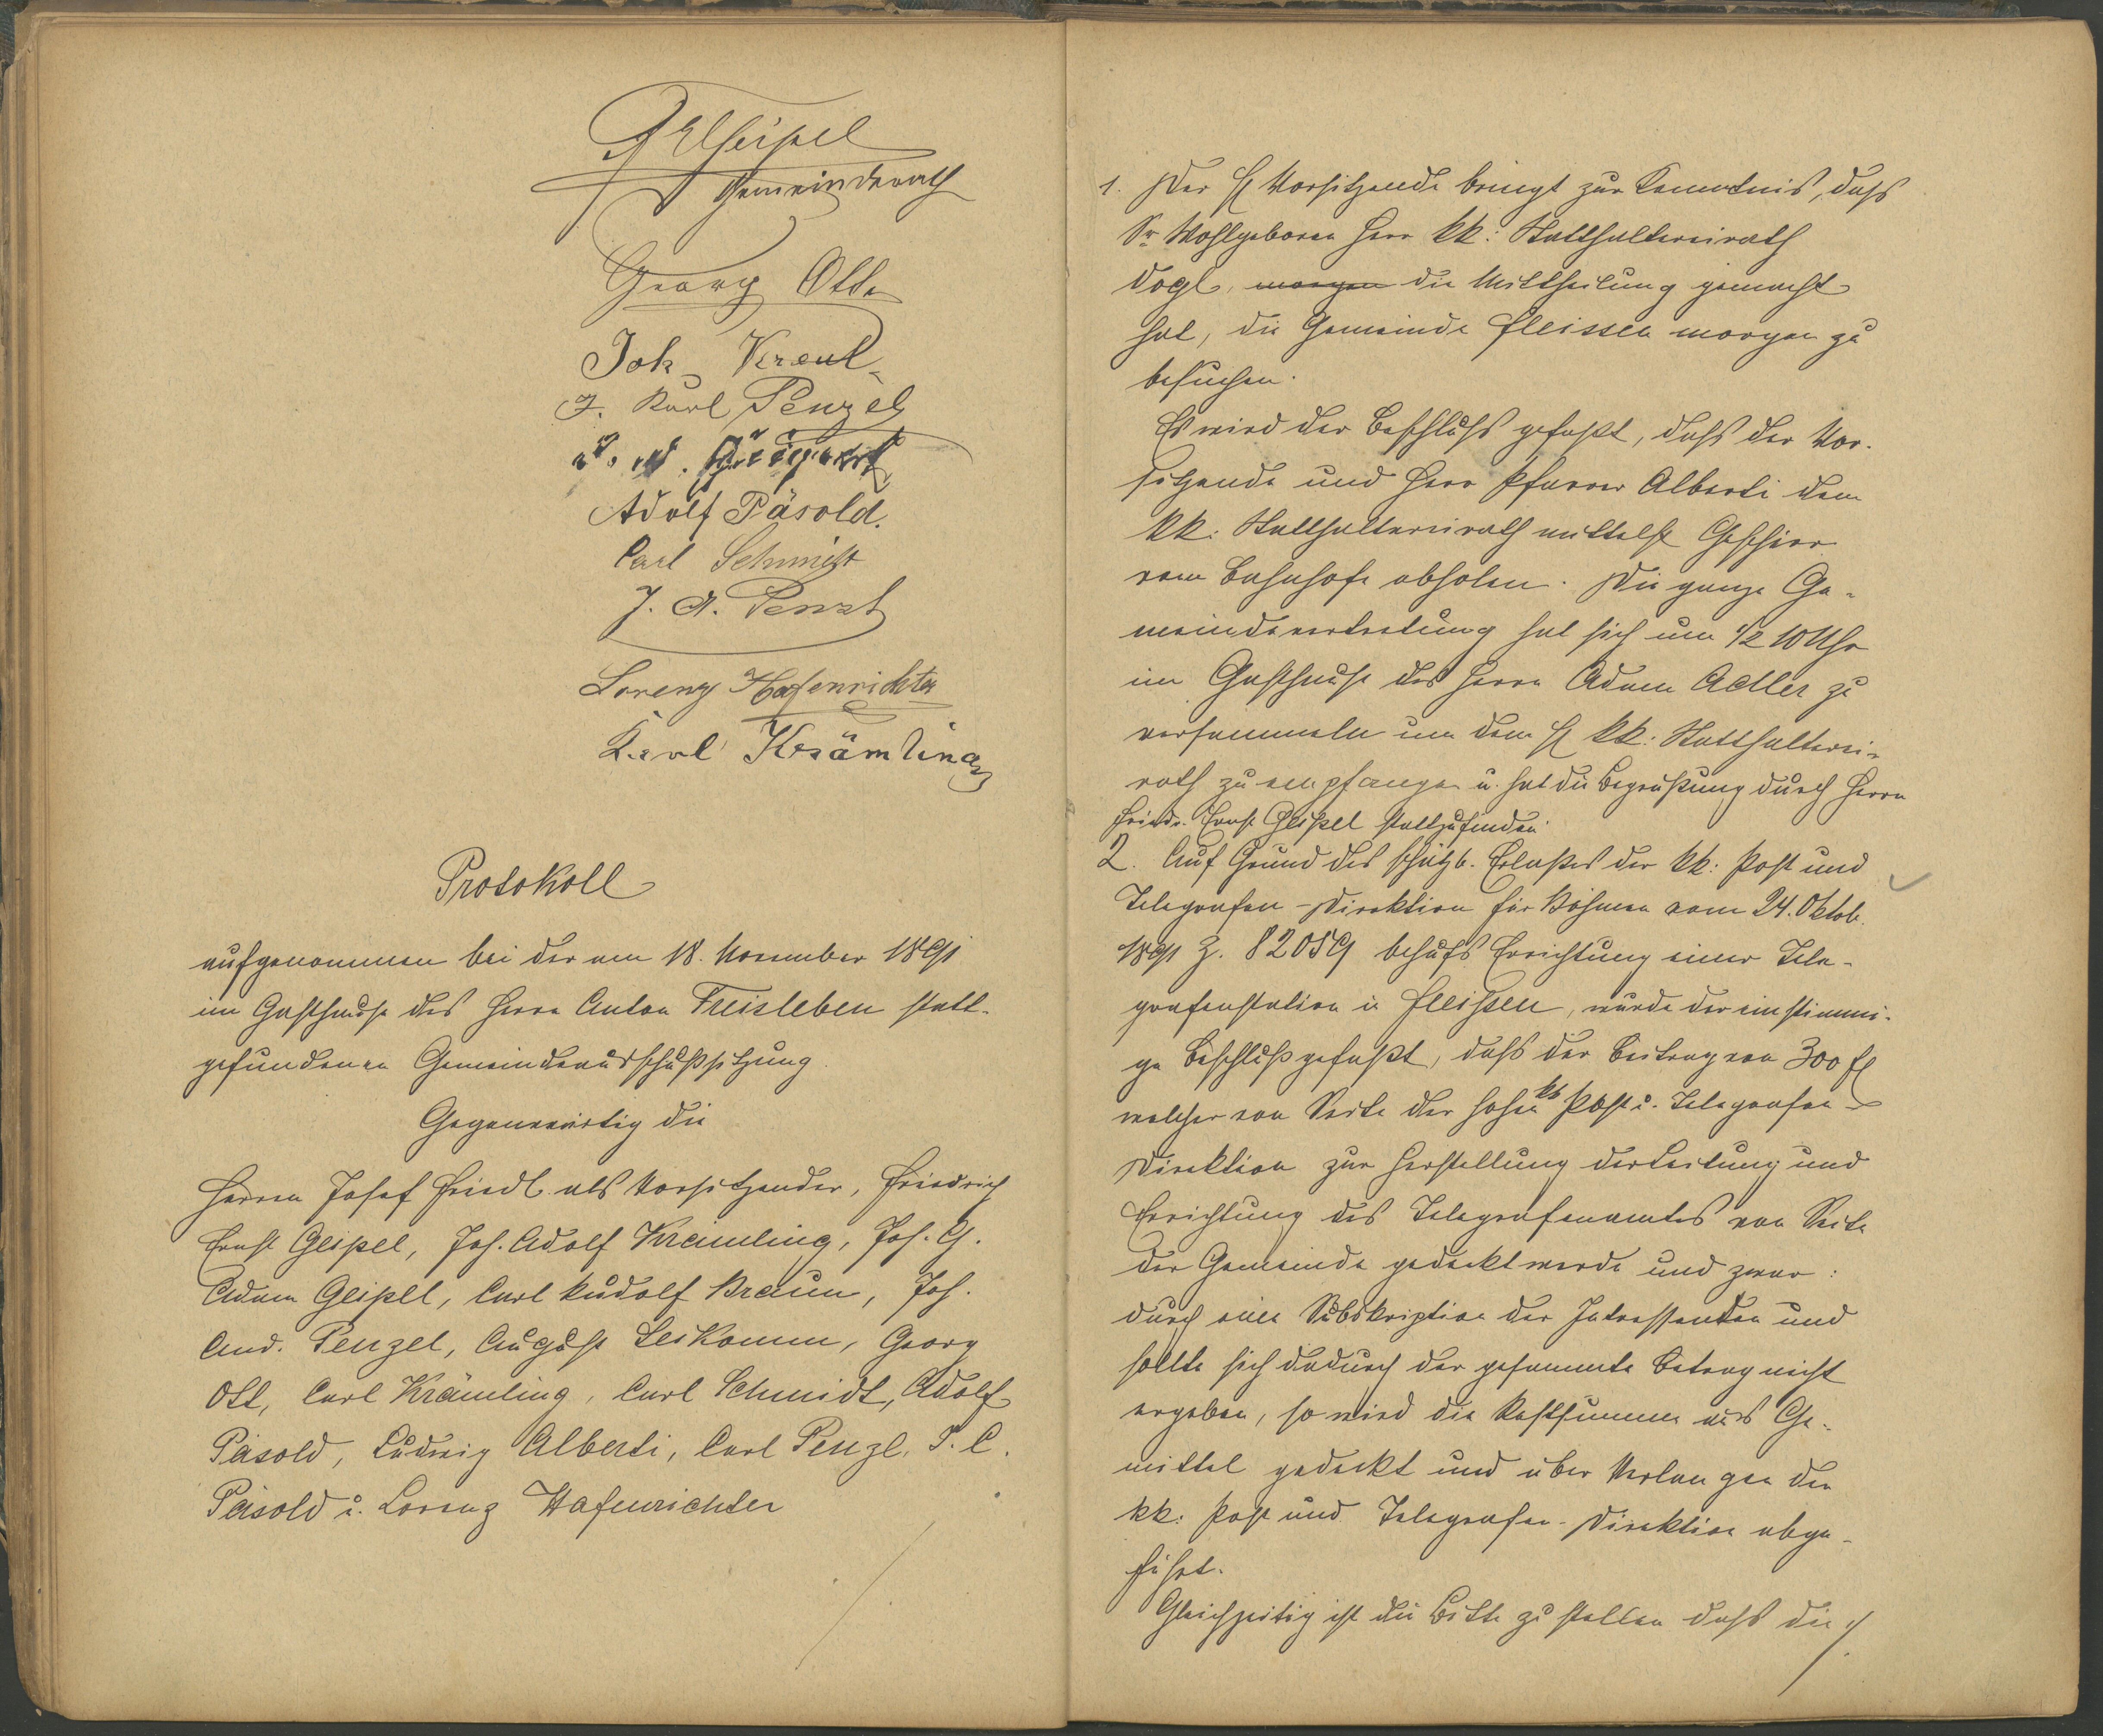 Geipel
Gemeinderath
Georg Ott
Joh. Kreul
J. Karl Penzel
Adolf Päsold.
Carl Schmidt
J. A. Penzl
Lorenz Hafenrichter
Karl Krämling
Protokoll
aufgenommen bei der am 18. November 1891
im Gasthause des Herrn Anton Treisleben statt-
gefundenen Gemeindeausschußsitzung
Gegenwärtig die
Herren Josef Friedl als Vorsitzender, Friedrich
Ernst Geipel, Joh. Adolf Krämling, Joh. G.
Adam Geipel, Carl Rudolf Braun, Joh.
And. Penzel, August Leikomm, Georg
Ott, Carl Krämling, Carl Schmidt, Adolf
Päsold, Ludwig Alberti, Carl Penzl, J. C.
Päsold u. Lorenz Hafenrichter
1. Der H Vorsitzende bringt zur Kenntnis, dass
Sr Wohlgeboren Herr kk: Statthaltereirath
Vogl, morgen die Mittheilung gemacht
hat, die Gemeinde Fleissen morgen zu
besuchen.
Es wird der Beschluss gefaßt, dass der Vor-
sitzende und Herr Pfarrer Alberti dem
kk: Statthaltereirath mittelst Geschirr
vom Bahnhofe abholen. Die ganze Ge-
meindevertretung hat sich um 1/2 10 Uhr
im Gasthause des Herrn Adam Adler zu
versammeln um dem H kk: Statthalterei-
rath zu empfangen u. hat die Begrüßung durch Herrn
Friedr. Ernst Geipel stattzufinden.
2. Auf Grund des schätzb. Erlaßes der kk: Post und
Telegrafen-Direktion für Böhmen vom 24. Oktob.
1891 Z. 82059 behufs Errichtung einer Tele-
grafenstation in Fleißen, wurde der einstimmi-
ge Beschluß gefaßt, dass der Beitrag von 300 fl
welcher von Seite der hohen kk Post u. Telegrafen-
Direktion zur Herstellung der Leitung und
Errichtung des Telegrafenamtes von Seite
der Gemeinde gedeckt werde und zwar:
durch eine Subskription der Intressenten und
sollte sich dadurch der gesammte Betrag nicht
ergeben, so wird die Restsumme aus Ge-
mittel gedeckt und über Verlangen der
kk: Post und Telegrafen-Direktion abge-
führt.
Gleichzeitig ist die Bitte zu stellen dass die ./.